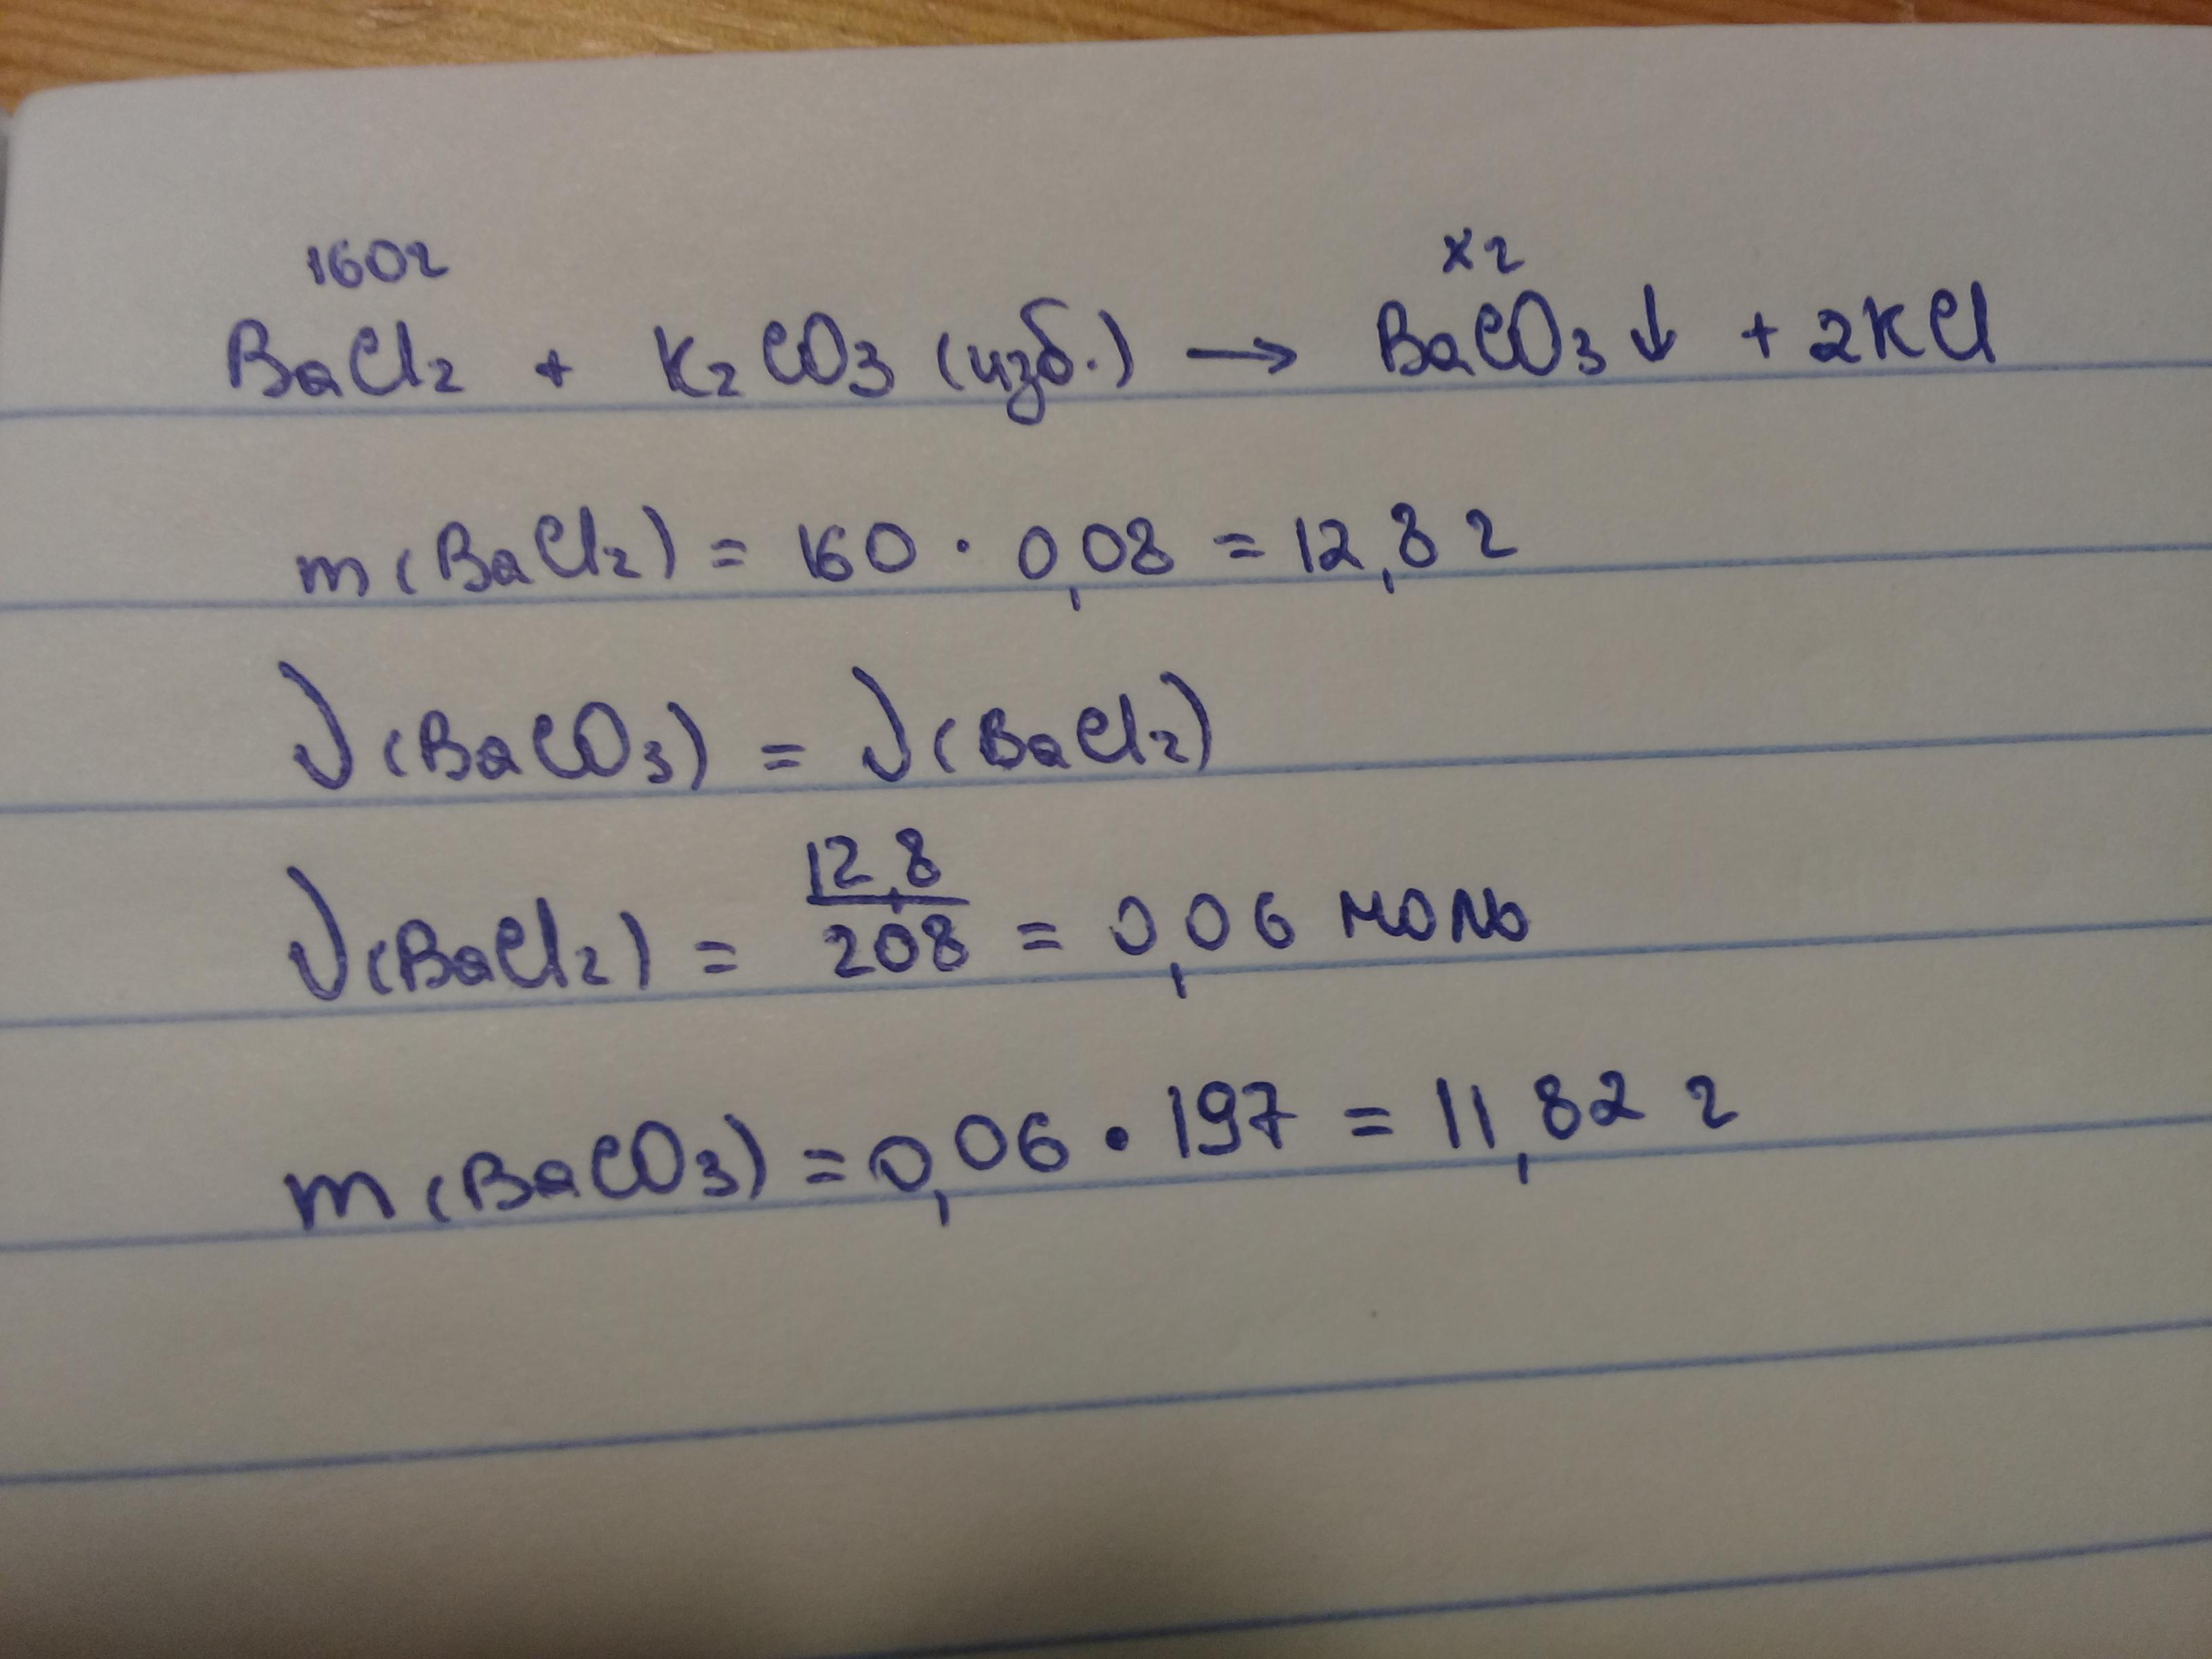 160г xг
BaCl₂ + K₂CO₃ (изб.) → BaCO₃↓ + 2KCl
m(BaCl₂) = 160 · 0,08 = 12,8 г
ν(BaCO₃) = ν(BaCl₂)
ν(BaCl₂) = 12,8/208 = 0,06 моль
m(BaCO₃) = 0,06 · 197 = 11,82 г